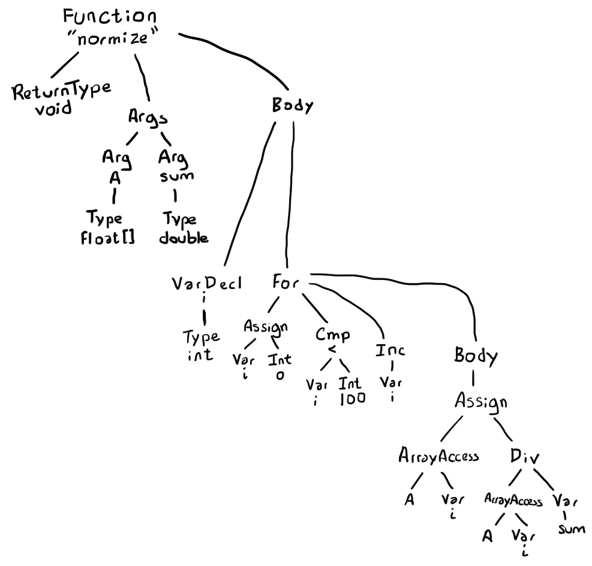 Function
"normize"
ReturnType
void
Args
Body
Arg
A
Arg
sum
Type
float[]
Type
double
VarDecl
i
Type
int
For
Assign
Var
i
Int
0
Cmp
<
Var
i
Int
100
Inc
Var
i
Body
Assign
ArrayAccess
A
Var
i
Div
ArrayAccess
A
Var
i
Var
sum